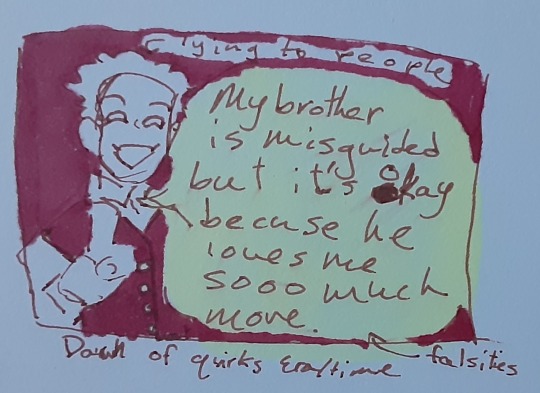 lying to people
My brother
is misguided
but it's okay
becuse he
loves me
sooo much
more.
Dawn of quirks era/time
falsities